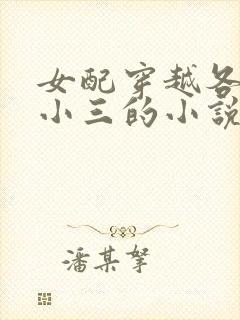 女配穿越各
小三的小說
潘某拏